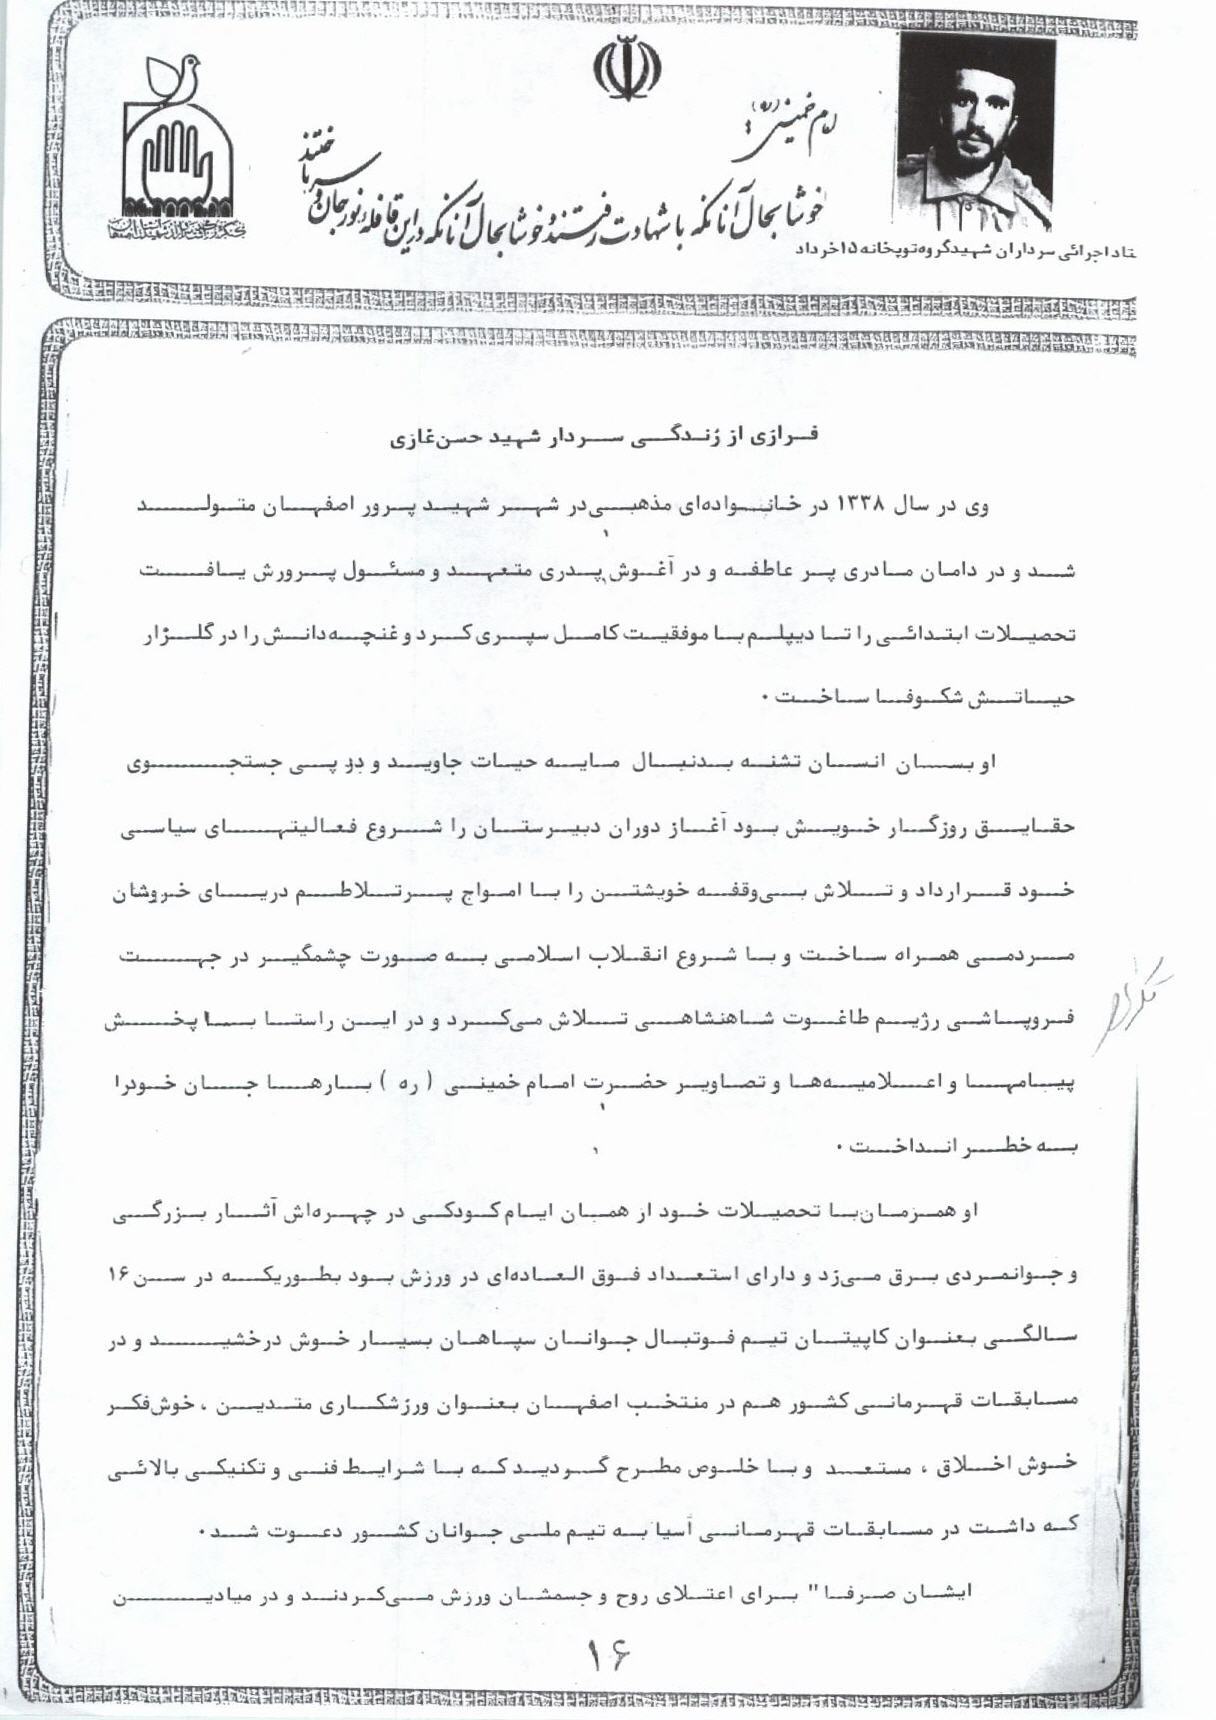 امام خمینی (ره):
خوشا بحال آنانکه با شهادت رفتند و خوشا بحال آنانکه در این قافله نور جان و سر باختند
تاد اجرائی سرداران شهید گروه توپخانه ۱۵ خرداد
فرازی از زندگی سردار شهید حسن غازی
وی در سال ۱۳۳۸ در خانواده‌ای مذهبی در شهر شهید پرور اصفهان متولد
شد و در دامان مادری پر عاطفه و در آغوش پدری متعهد و مسئول پرورش یافت
تحصیلات ابتدائی را تا دیپلم با موفقیت کامل سپری کرد و غنچه دانش را در گلزار
حیاتش شکوفا ساخت .
او بسان انسان تشنه بدنبال مایه حیات جاوید و در پی جستجوی
حقایق روزگار خویش بود آغاز دوران دبیرستان را شروع فعالیتهای سیاسی
خود قرارداد و تلاش بی‌وقفه خویشتن را با امواج پرتلاطم دریای خروشان
مردمی همراه ساخت و با شروع انقلاب اسلامی به صورت چشمگیر در جهت
فروپاشی رژیم طاغوت شاهنشاهی تلاش می‌کرد و در این راستا با پخش
پیامها و اعلامیه‌ها و تصاویر حضرت امام خمینی ( ره ) بارها جان خودرا
به خطر انداخت .
او همزمان با تحصیلات خود از همان ایام کودکی در چهره‌اش آثار بزرگی
و جوانمردی برق می‌زد و دارای استعداد فوق العاده‌ای در ورزش بود بطوریکه در سن ۱۶
سالگی بعنوان کاپیتان تیم فوتبال جوانان سپاهان بسیار خوش درخشید و در
مسابقات قهرمانی کشور هم در منتخب اصفهان بعنوان ورزشکاری متدین ، خوش‌فکر
خوش اخلاق ، مستعد و با خلوص مطرح گردید که با شرایط فنی و تکنیکی بالائی
که داشت در مسابقات قهرمانی آسیا به تیم ملی جوانان کشور دعوت شد .
ایشان صرفا" برای اعتلای روح و جسمشان ورزش می‌کردند و در میادین
۱۶